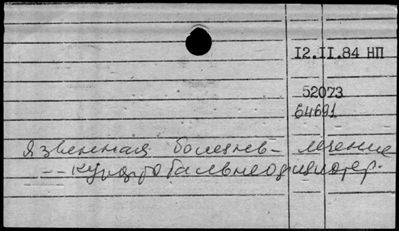 12.II.84 НП
52073
64691
язвенная болезнь - лечение
-- курортобальнеофизиотер.